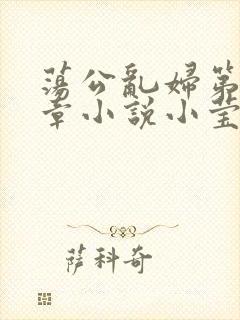 蕩公亂婦第
章小說小莹
萨科奇